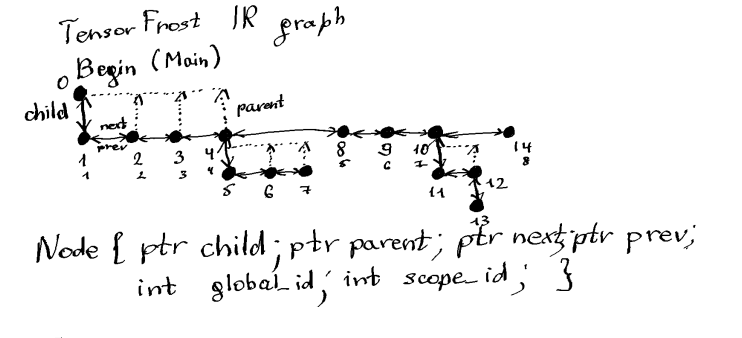 TensorFrost IR graph
Begin (Main)
0
child
next
prev
parent
1 2 3 4 8 9 10 14
1 2 3 4 5 6 7 8
5 6 7 11 12
13
Node { ptr child; ptr parent; ptr next; ptr prev;
int global_id; int scope_id; }